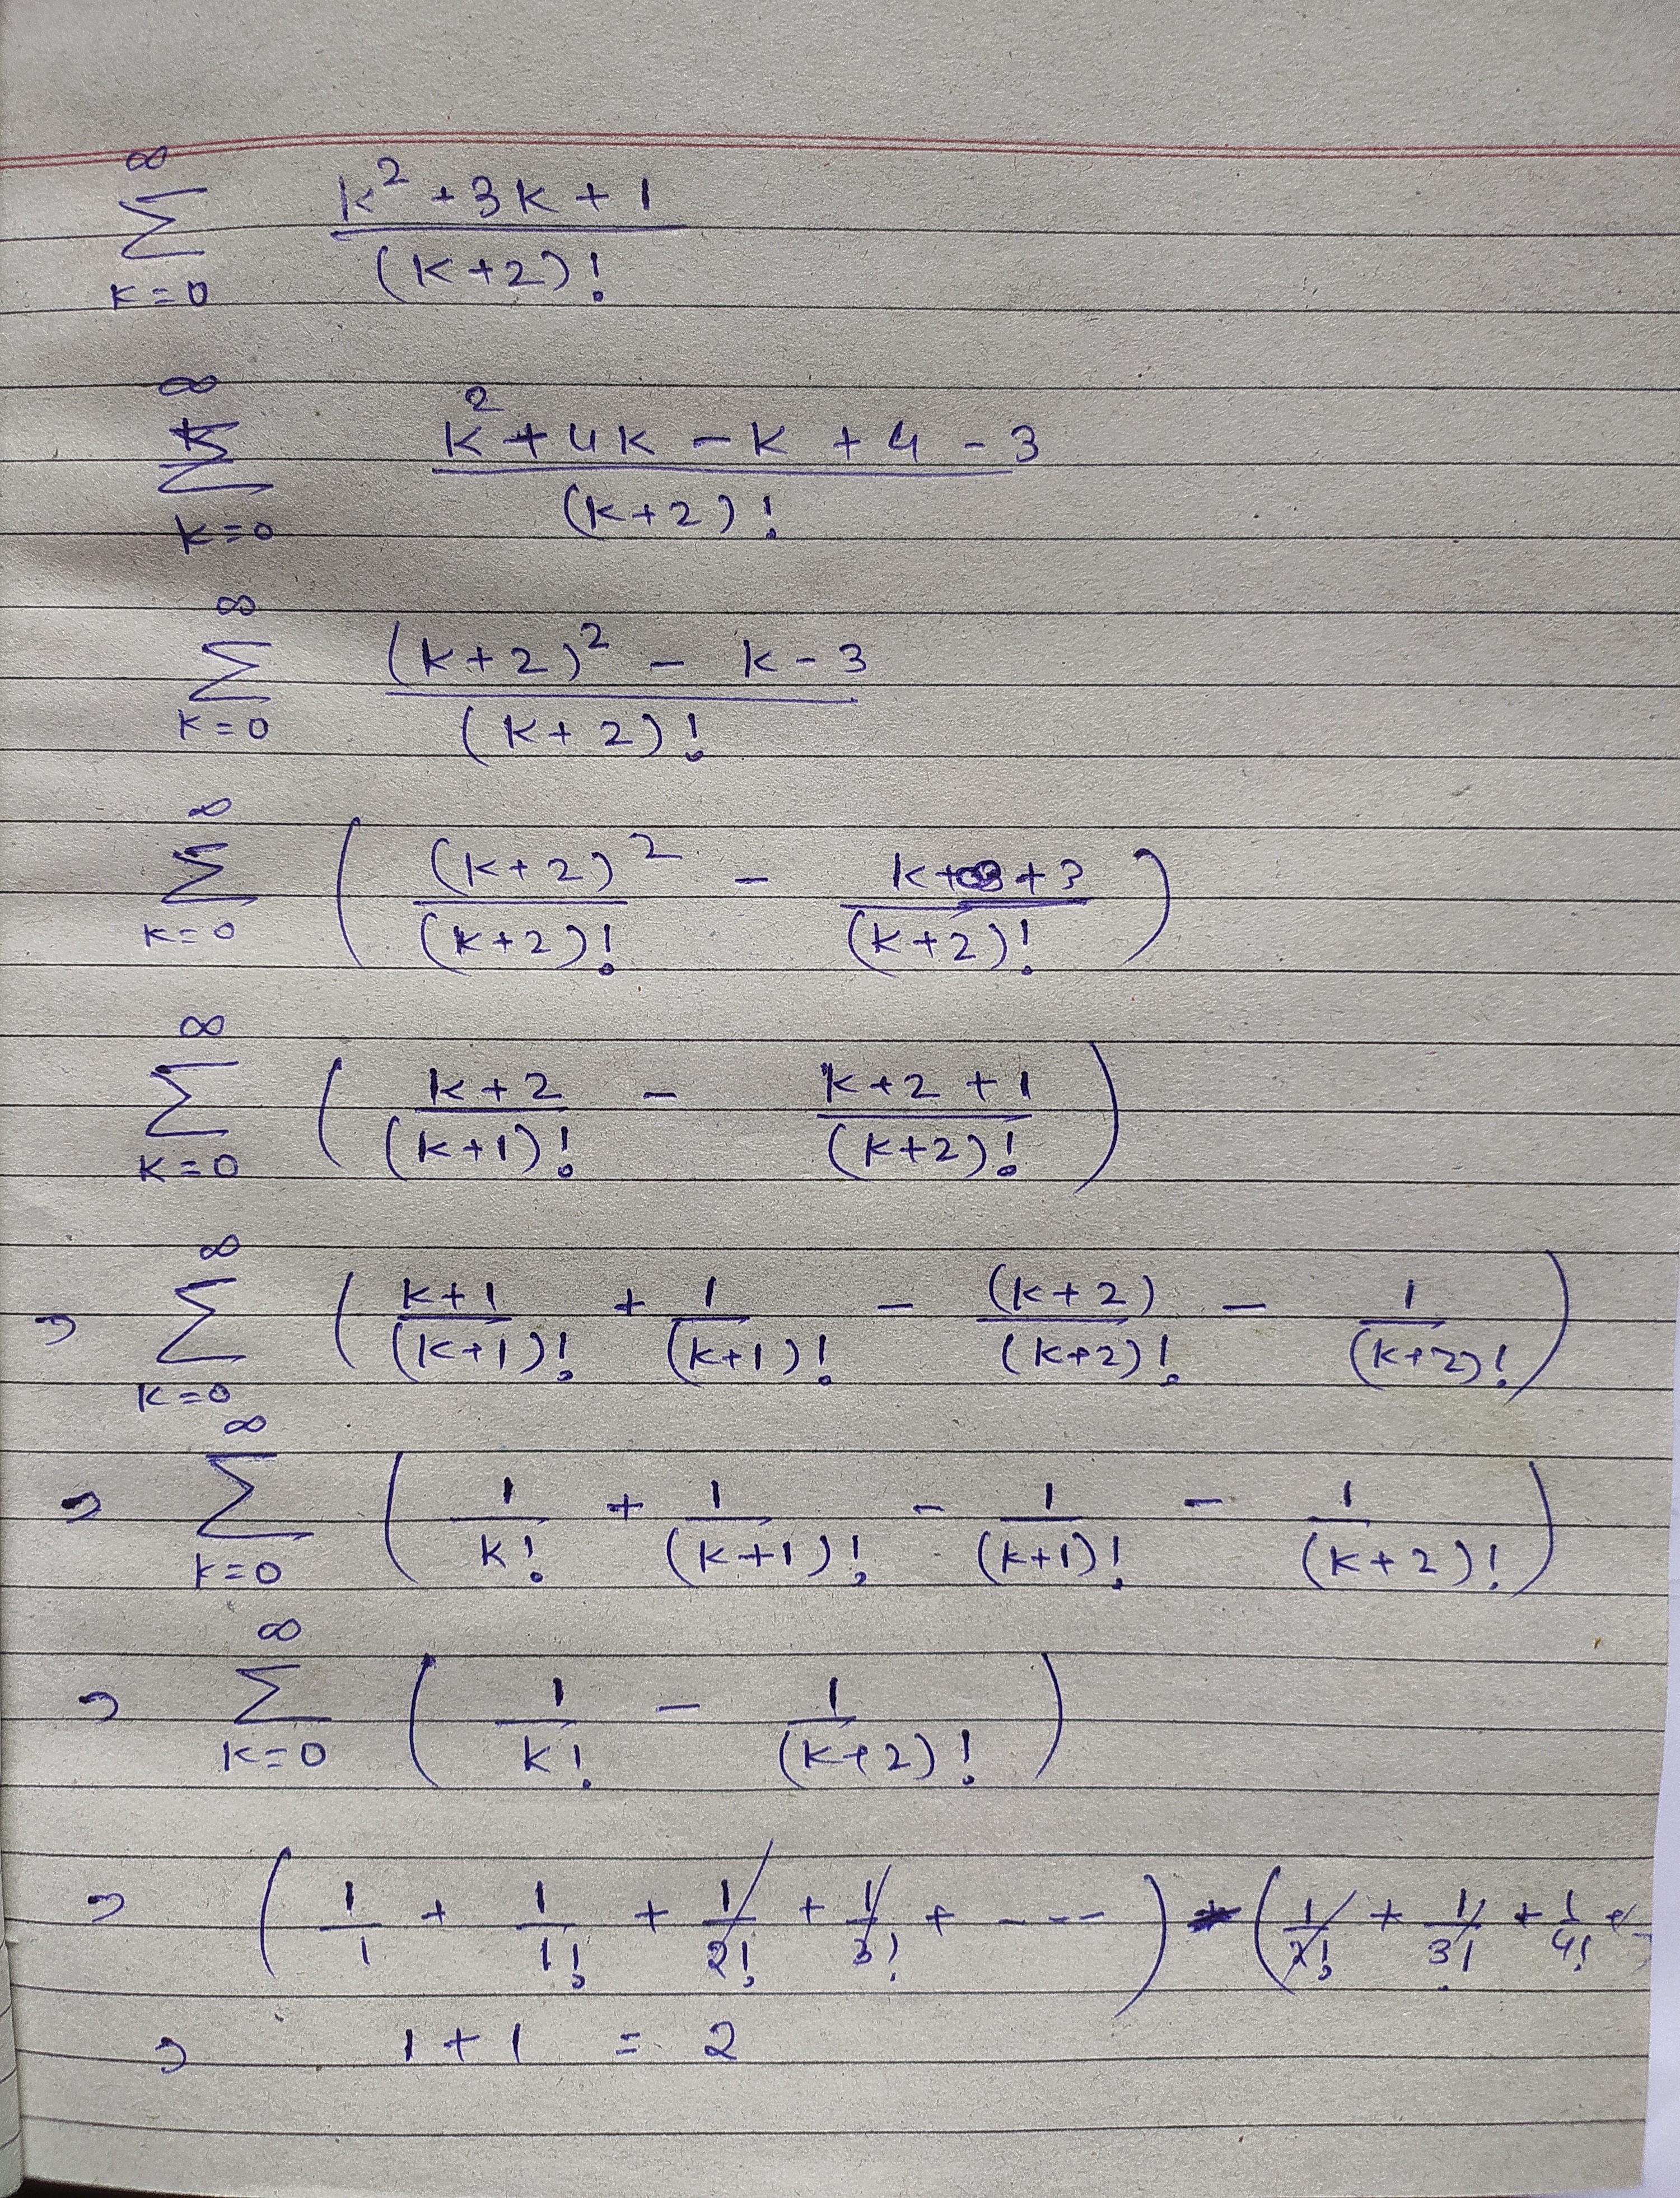 ∞
∑ k² + 3k + 1 / (k+2)!
k=0
∞
∑ k² + 4k - k + 4 - 3 / (k+2)!
k=0
∞
∑ (k+2)² - k - 3 / (k+2)!
k=0
∞
∑ ( (k+2)² / (k+2)! - k + 3 / (k+2)! )
k=0
∞
∑ ( k+2 / (k+1)! - k+2+1 / (k+2)! )
k=0
∞
⇒ ∑ ( k+1 / (k+1)! + 1 / (k+1)! - (k+2) / (k+2)! - 1 / (k+2)! )
k=0
∞
⇒ ∑ ( 1 / k! + 1 / (k+1)! - 1 / (k+1)! - 1 / (k+2)! )
k=0
∞
⇒ ∑ ( 1 / k! - 1 / (k+2)! )
k=0
⇒ ( 1/1 + 1/1! + 1/2! + 1/3! + ---- ) - ( 1/2! + 1/3! + 1/4! +
⇒ 1 + 1 = 2